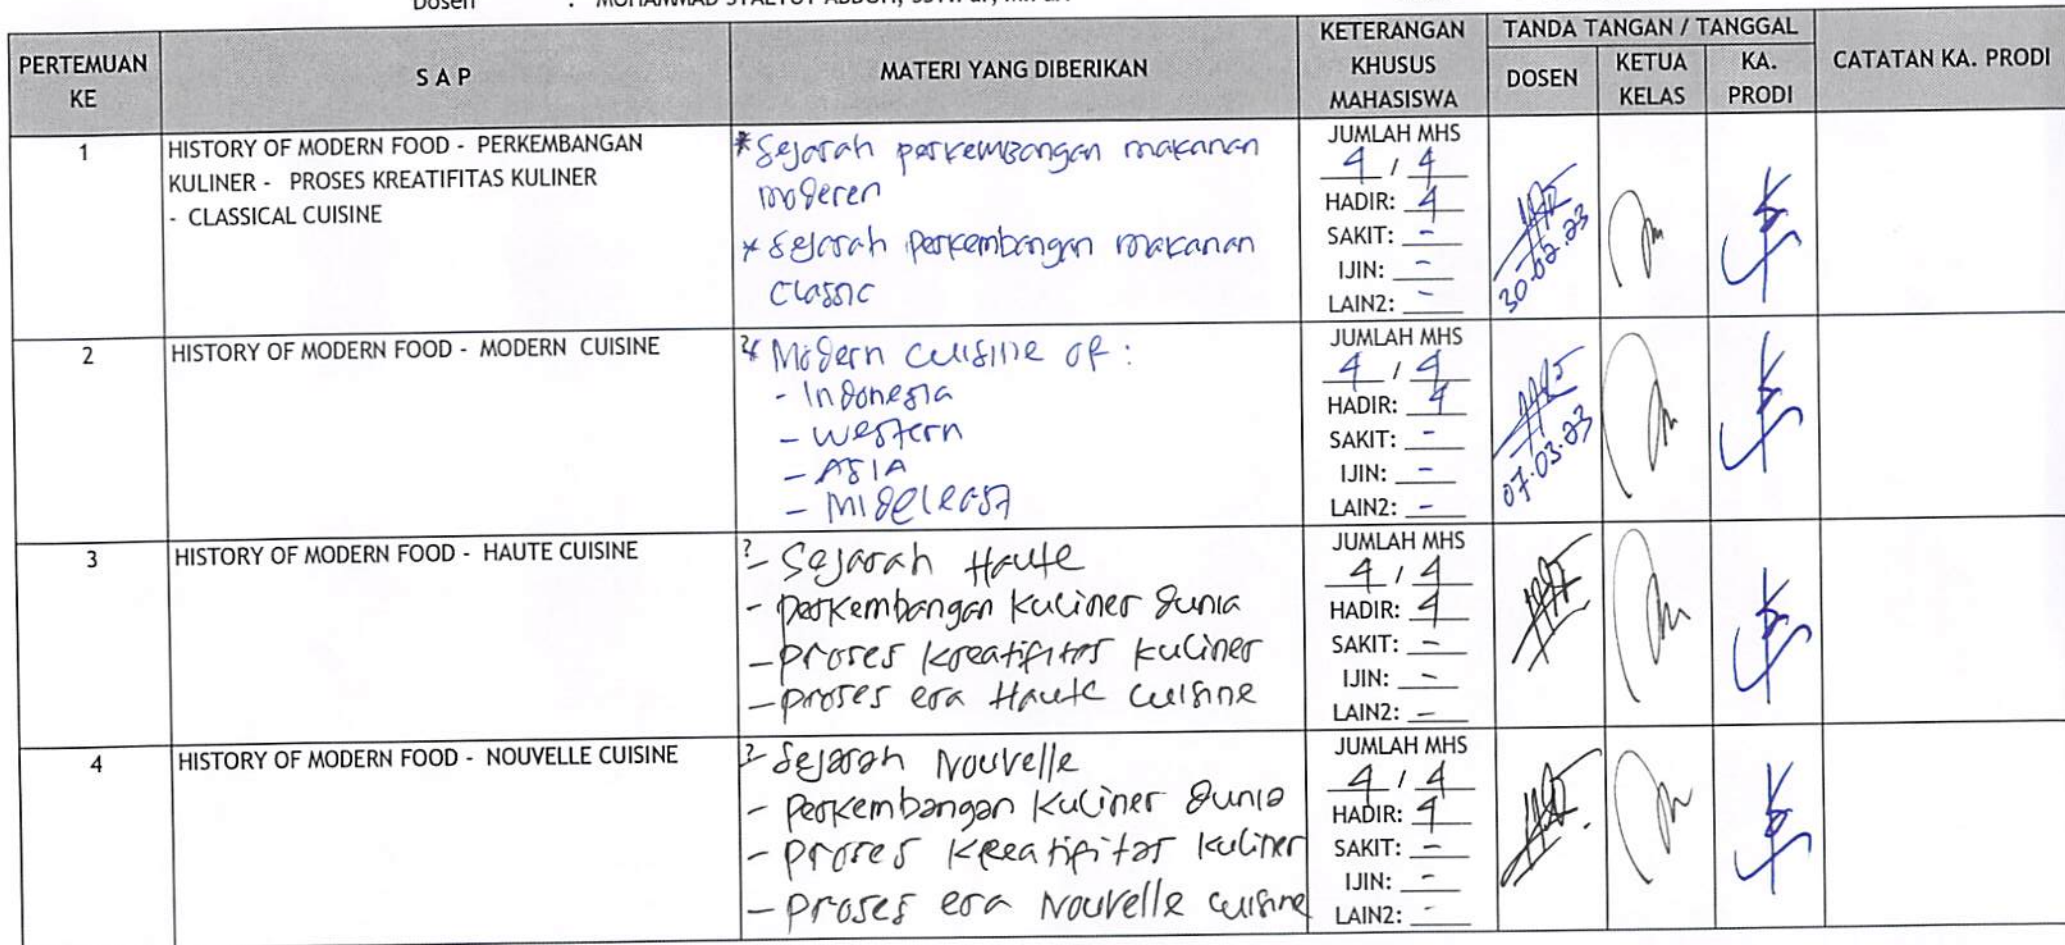 Dosen :
PERTEMUAN KE
S A P
MATERI YANG DIBERIKAN
KETERANGAN KHUSUS MAHASISWA
TANDA TANGAN / TANGGAL
DOSEN
KETUA KELAS
KA. PRODI
CATATAN KA. PRODI
1
HISTORY OF MODERN FOOD - PERKEMBANGAN
KULINER - PROSES KREATIFITAS KULINER
- CLASSICAL CUISINE
* Sejarah perkembangan makanan
moderen
* Sejarah perkembangan makanan
Classic
JUMLAH MHS
4 / 4
HADIR: 4
SAKIT: -
IJIN: -
LAIN2: -
30.02.23
2
HISTORY OF MODERN FOOD - MODERN CUISINE
* Modern cuisine of :
- Indonesia
- Western
- ASIA
- Mideleast
JUMLAH MHS
4 / 4
HADIR: 4
SAKIT: -
IJIN: -
LAIN2: -
07.03.23
3
HISTORY OF MODERN FOOD - HAUTE CUISINE
- Sejarah Haute
- perkembangan kuliner dunia
- proses kreatifitas kuliner
- proses era Haute cuisine
JUMLAH MHS
4 / 4
HADIR: 4
SAKIT: -
IJIN: -
LAIN2: -
4
HISTORY OF MODERN FOOD - NOUVELLE CUISINE
- Sejarah Nouvelle
- Perkembangan kuliner dunia
- proses kreatifitas kuliner
- proses era Nouvelle cuisine
JUMLAH MHS
4 / 4
HADIR: 4
SAKIT: -
IJIN: -
LAIN2: -